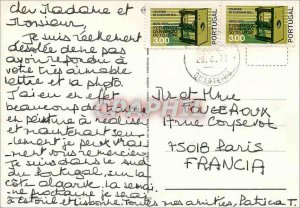 cher Madame et
Monsieur,
Je suis réellement
désolée de ne pas
avoir répondu à
votre très aimable
lettre et la photo.
J'ai eu en effet
beaucoup de travaux
en peinture à réaliser
et maintenant seu-
lement je peux vrai-
ment vous remercier
Je suis dans le sud
du Portugal, sur la
côte algarve. La semai-
ne prochaine je serai
à Estoril et Lisbonne. Toutes mes amitiés, Patricia T.
PORTUGAL
3.00
PORTUGAL
3.00
Mr et Mme
FOUGEROUX
17 rue Coysevox
75018 Paris
FRANCIA